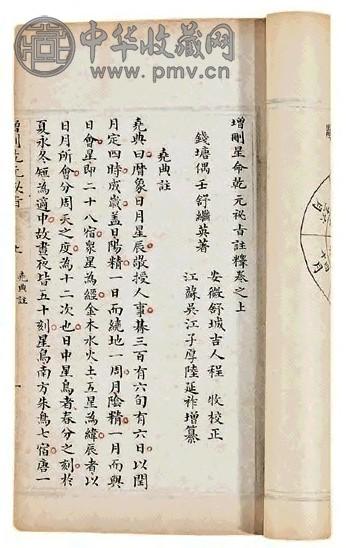 中华收藏网
www.pmv.cn
增刪星命乾元秘旨註釋卷之上
錢塘偶壬舒繼英著
安徽舒城吉人程 牧校正
江蘇吳江子厚陸延祚增纂
堯典註
堯典曰曆象日月星辰敬授人事朞三百有六旬有六日以閏
月定四時成歲蓋日陽精一日而繞地一周月陰精一月而與
日會星即二十八宿眾星為經金木水火土五星為緯辰者以
日月所會分周天之度為十二次也日中星鳥者春分之刻於
夏永冬短為適中故晝夜皆五十刻星鳥南方朱鳥七宿唐一
增刪乾元秘旨
上
堯典註
一